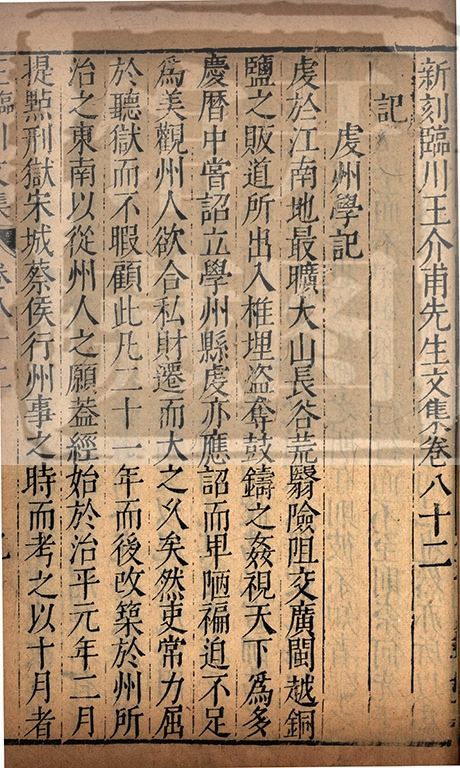 新刻臨川王介甫先生文集卷八十二
記
虔州學記
虔於江南地最曠大山長谷荒翳險阻交廣閩越銅
鹽之販道所出入椎埋盗奪鼓鑄之姦視天下爲多
慶曆中嘗詔立學州縣虔亦應詔而卑陋褊迫不足
爲美觀州人欲合私財遷而大之乆矣然吏常力屈
於聽獄而不暇顧此凡二十一年而後改築於州所
治之東南以從州人之願蓋經始於治平元年二月
提㸃刑獄宋城蔡侯行州事之時而考之以十月者
王臨川文集 卷八十二